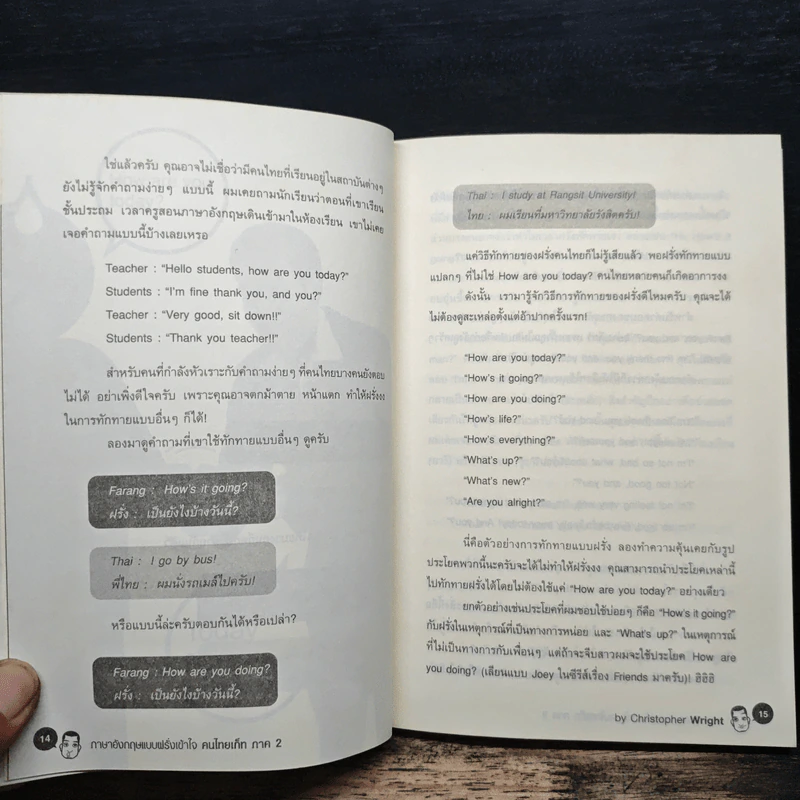 ใช่แล้วครับ คุณอาจไม่เชื่อว่ามีคนไทยที่เรียนอยู่ในสถาบันต่างๆ
ยังไม่รู้จักคำถามง่ายๆ แบบนี้ ผมเคยถามนักเรียนว่าตอนที่เขาเรียน
ชั้นประถม เวลาครูสอนภาษาอังกฤษเดินเข้ามาในห้องเรียน เขาไม่เคย
เจอคำถามแบบนี้บ้างเลยเหรอ
Teacher : “Hello students, how are you today?”
Students : “I'm fine thank you, and you?”
Teacher : “Very good, sit down!!”
Students : “Thank you teacher!!”
สำหรับคนที่กำลังหัวเราะกับคำถามง่ายๆ ที่คนไทยบางคนยังตอบ
ไม่ได้ อย่าเพิ่งดีใจครับ เพราะคุณอาจตกม้าตาย หน้าแตก ทำให้ฝรั่งงง
ในการทักทายแบบอื่นๆ ก็ได้!
ลองมาดูคำถามที่เขาใช้ทักทายแบบอื่นๆ ดูครับ
Farang : How's it going?
ฝรั่ง : เป็นยังไงบ้างวันนี้?
Thai : I go by bus!
พี่ไทย : ผมนั่งรถเมล์ไปครับ!
หรือแบบนี้ล่ะครับตอบกันได้หรือเปล่า?
Farang : How are you doing?
ฝรั่ง : เป็นยังไงบ้างวันนี้?
14 ภาษาอังกฤษแบบฝรั่งเข้าใจ คนไทยเก็ท ภาค 2
Thai : I study at Rangsit University!
ไทย : ผมเรียนที่มหาวิทยาลัยรังสิตครับ!
แค่วิธีทักทายของฝรั่งคนไทยก็ไม่รู้เสียแล้ว พอฝรั่งทักทายแบบ
แปลกๆ ที่ไม่ใช่ How are you today? คนไทยหลายคนก็เกิดอาการงง
ดังนั้น เรามารู้จักวิธีการทักทายของฝรั่งดีไหมครับ คุณจะได้
ไม่ต้องดูสะเหล่อตั้งแต่อ้าปากครั้งแรก!
“How are you today?”
“How's it going?”
“How are you doing?”
“How's life?”
“How's everything?”
“What's up?”
“What's new?”
“Are you alright?”
นี่คือตัวอย่างการทักทายแบบฝรั่ง ลองทำความคุ้นเคยกับรูป
ประโยคพวกนี้นะครับจะได้ไม่ทำให้ฝรั่งงง คุณสามารถนำประโยคเหล่านี้
ไปทักทายฝรั่งได้โดยไม่ต้องใช้แค่ “How are you today?” อย่างเดียว
ยกตัวอย่างเช่นประโยคที่ผมชอบใช้บ่อยๆ ก็คือ “How's it going?”
กับฝรั่งในเหตุการณ์ที่เป็นทางการหน่อย และ “What's up?” ในเหตุการณ์
ที่ไม่เป็นทางการกับเพื่อนๆ แต่ถ้าจะจีบสาวผมจะใช้ประโยค How are
you doing? (เลียนแบบ Joey ในซีรีส์เรื่อง Friends มาครับ)! ฮิฮิฮิ
by Christopher Wright 15